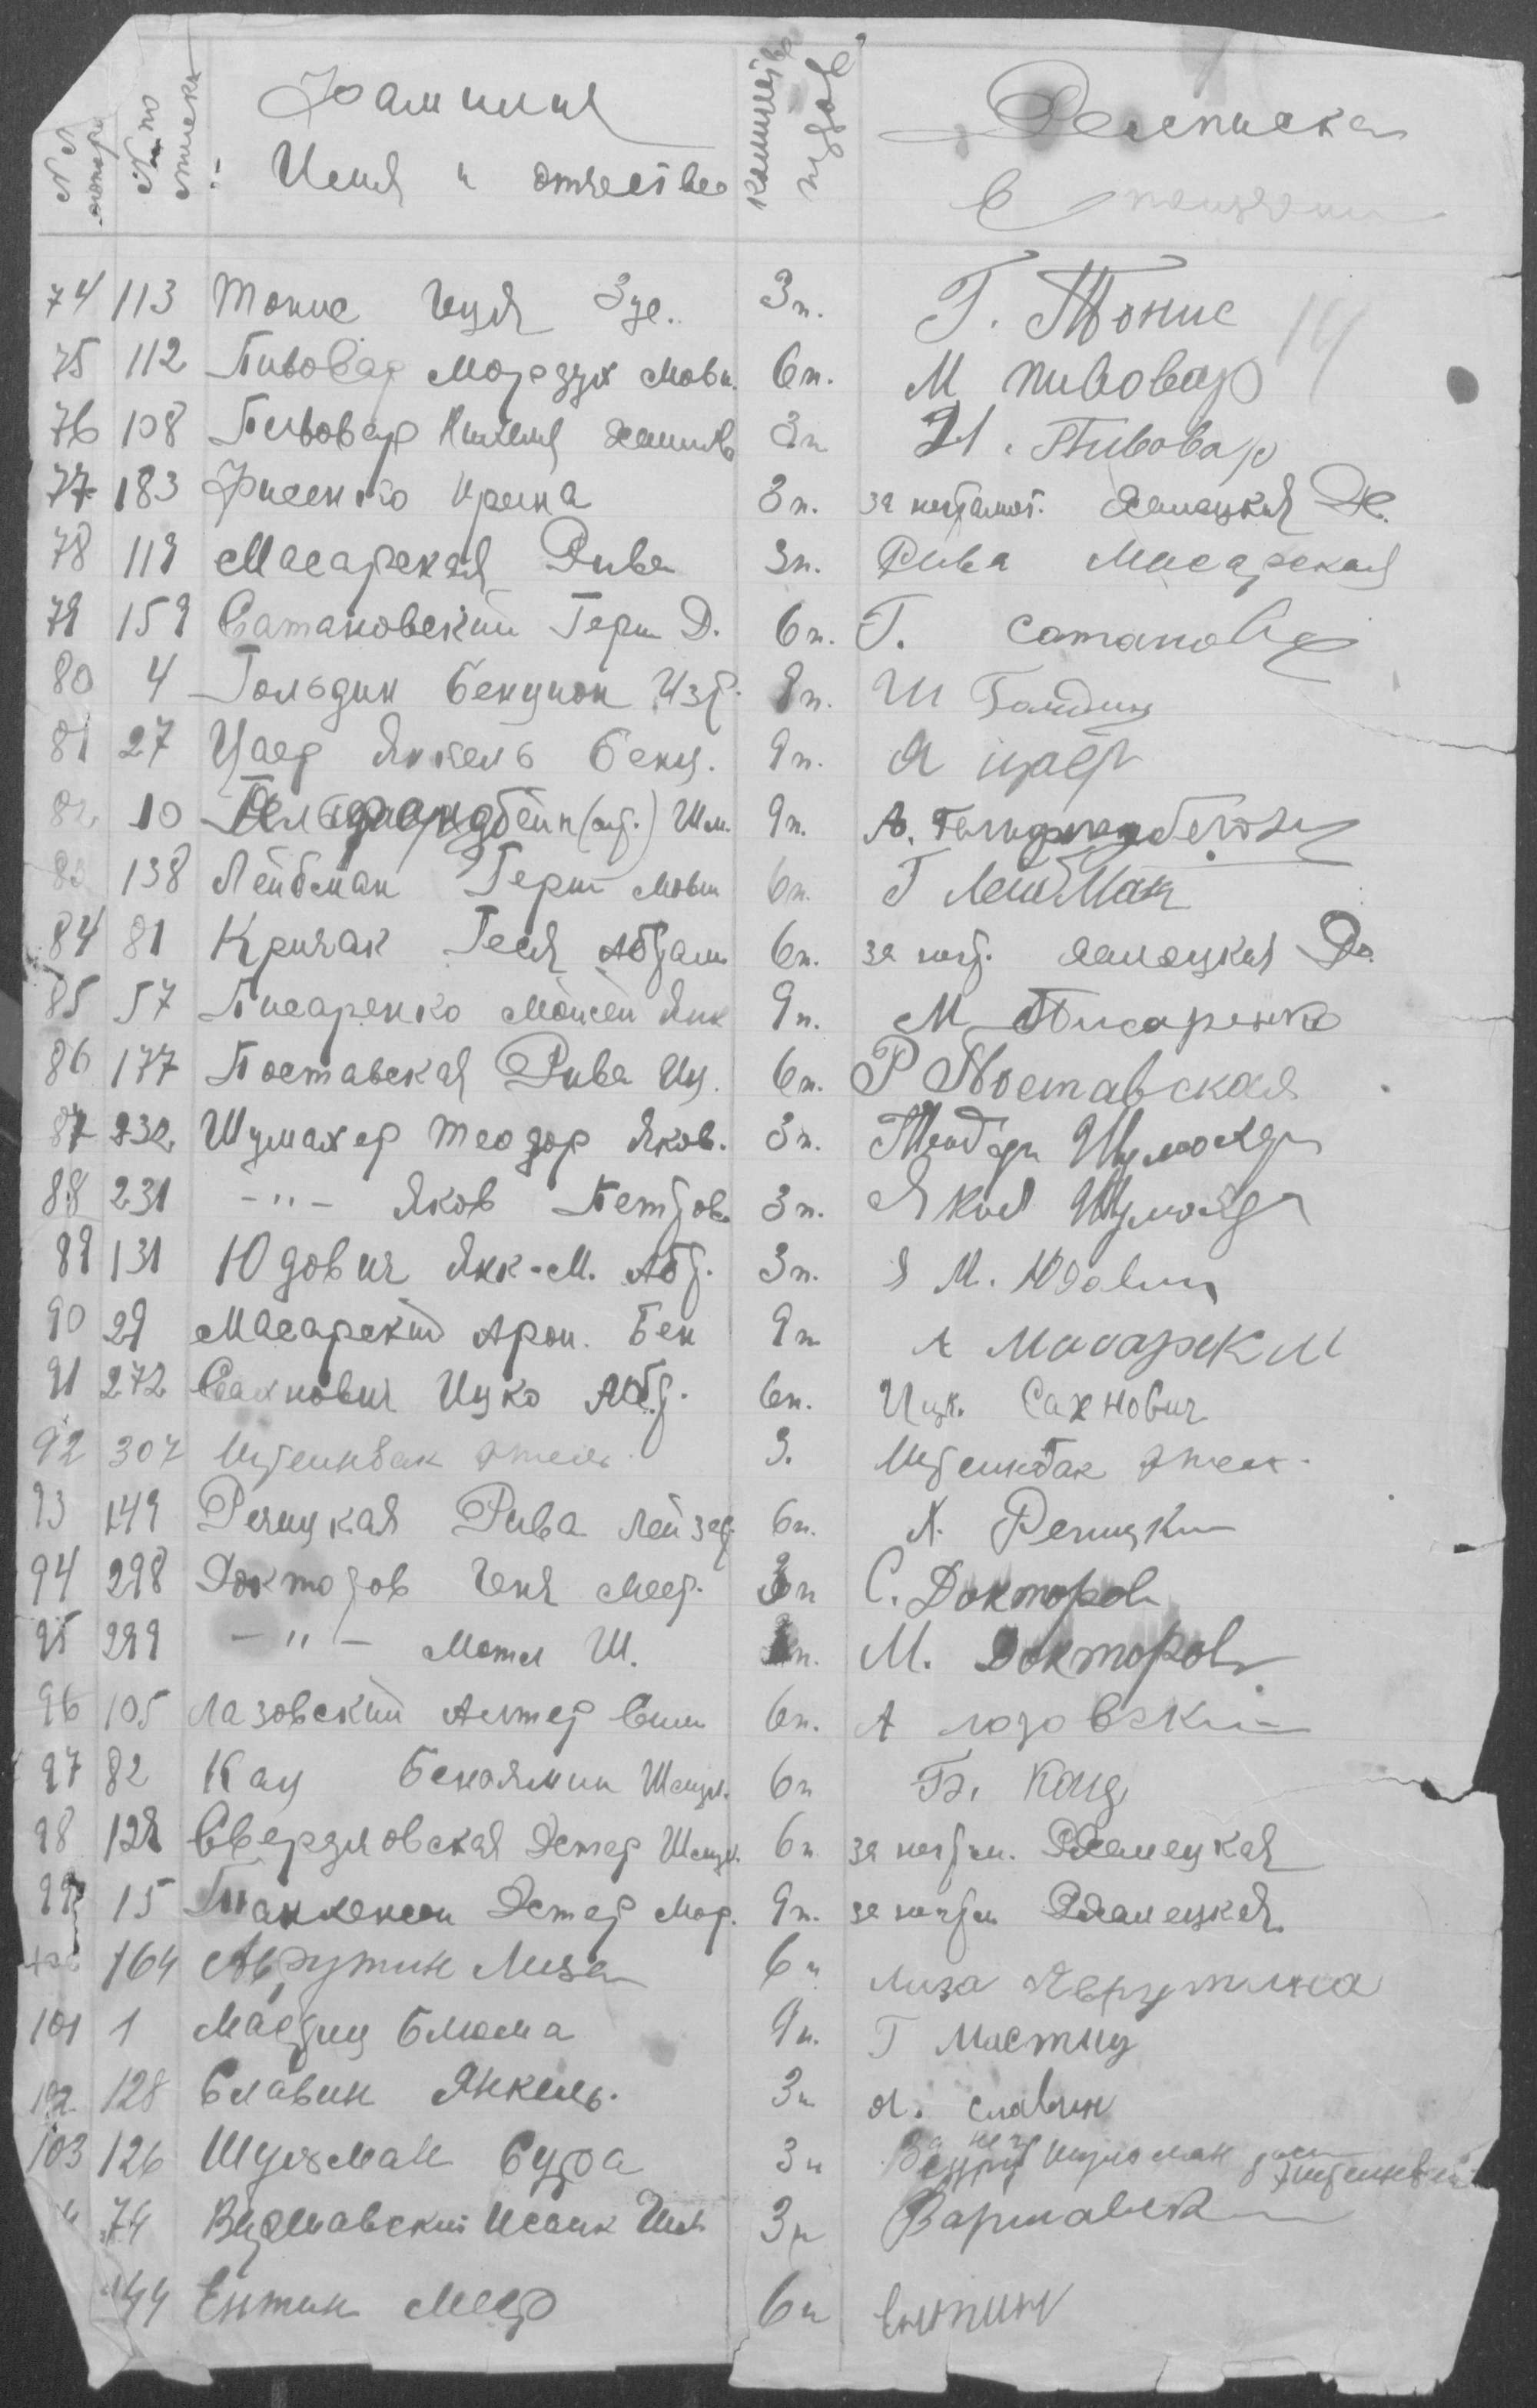 № № по списку Фамилия Имя и отчество количество пудов Расписка
в получении
74 113 Тонис Геця Зус. 3п. Г. Тонис
75 112 Пивовар Мордух Мовш. 6п. М Пивовар
76 108 Пивовар 3п И. Пивовар
77 183 Фисенко Ирина 3п. за неграмот. Хамецкая
78 119 Масарская Рива 3п. Рива Масарская
79 159 Сатановский Герш Д. 6п. Г. Сатановс
80 4 Гольдин Бенцион Изр. 9п. Ш Голдин
81 27 Цаер Янкель Бенц. 9п. Я цаер
82 10 Ш. 9п. А.
83 138 Лейбман Герш Мовш 6п. Г Лейбман
84 81 Кричак Геся Абрам 6п. за негр. Хамецкая
85 57 Писаренко Моисей Янк 9п. М Писаренко
86 177 Поставская Рива Иц. 6п. Р Поставская
87 232 Шумахер Теодор Яков. 3п. Теодор Шумахер
88 231 -"- Яков Петров. 3п. Яков Шумахер
89 131 Юдович Янк-М. Абр. 3п. Я М. Юдович
90 29 Масарский Арон. Бен 9п А Масарский
91 272 Сахнович Ицко Абр. 6п. Ицк. Сахнович
92 307 Штеинбак Этель 3. Штеинбак Этел.
93 149 Речицкая Рива Лейзер. 6п. Речицки
94 298 Докторов Геня Меер. 3п С. Докторов
95 299 -"- Мотл Ш. п. М. Докторов
96 105 Лазовский Алтер Сим 6п. А лозовски
97 82 Кац Бенямин Шмул. 6п Бн. Кац
98 129 Свердловская Эстер Шмул. 6п за неграм. Хамецкая
99 15 Эстер Мор. 9п. за неграм Хамецкая
100 164 Аврутин Лиза 6п Лиза Аврутина
101 1 Блюма 9п. Г
102 128 Славин Янкель. 3п Я. славин
103 126 Шульман Сура 3п За негр Шульман
74 Варшавский Исаак 3п Варшавск
144 Ентин Меер 6п Ентин